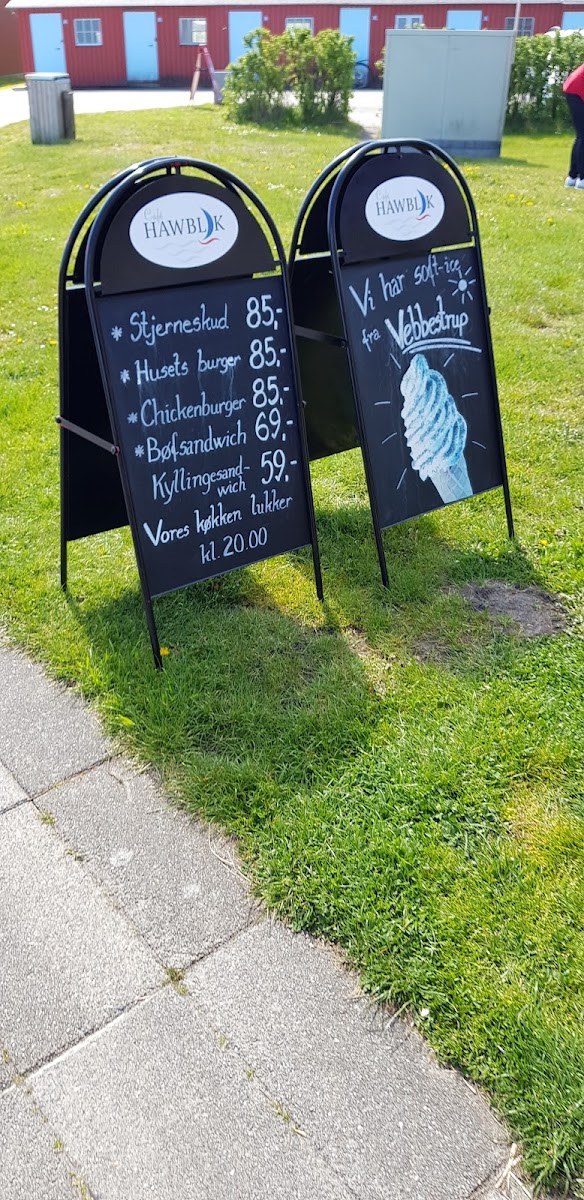 Café
HAWBLIK
* Stjerneskud 85,-
* Husets burger 85,-
* Chickenburger 85,-
* Bøfsandwich 69,-
Kyllingesand-
wich 59,-
Vores køkken lukker
kl. 20.00
Café
HAWBLIK
Vi har soft-ice
fra Vebbestrup